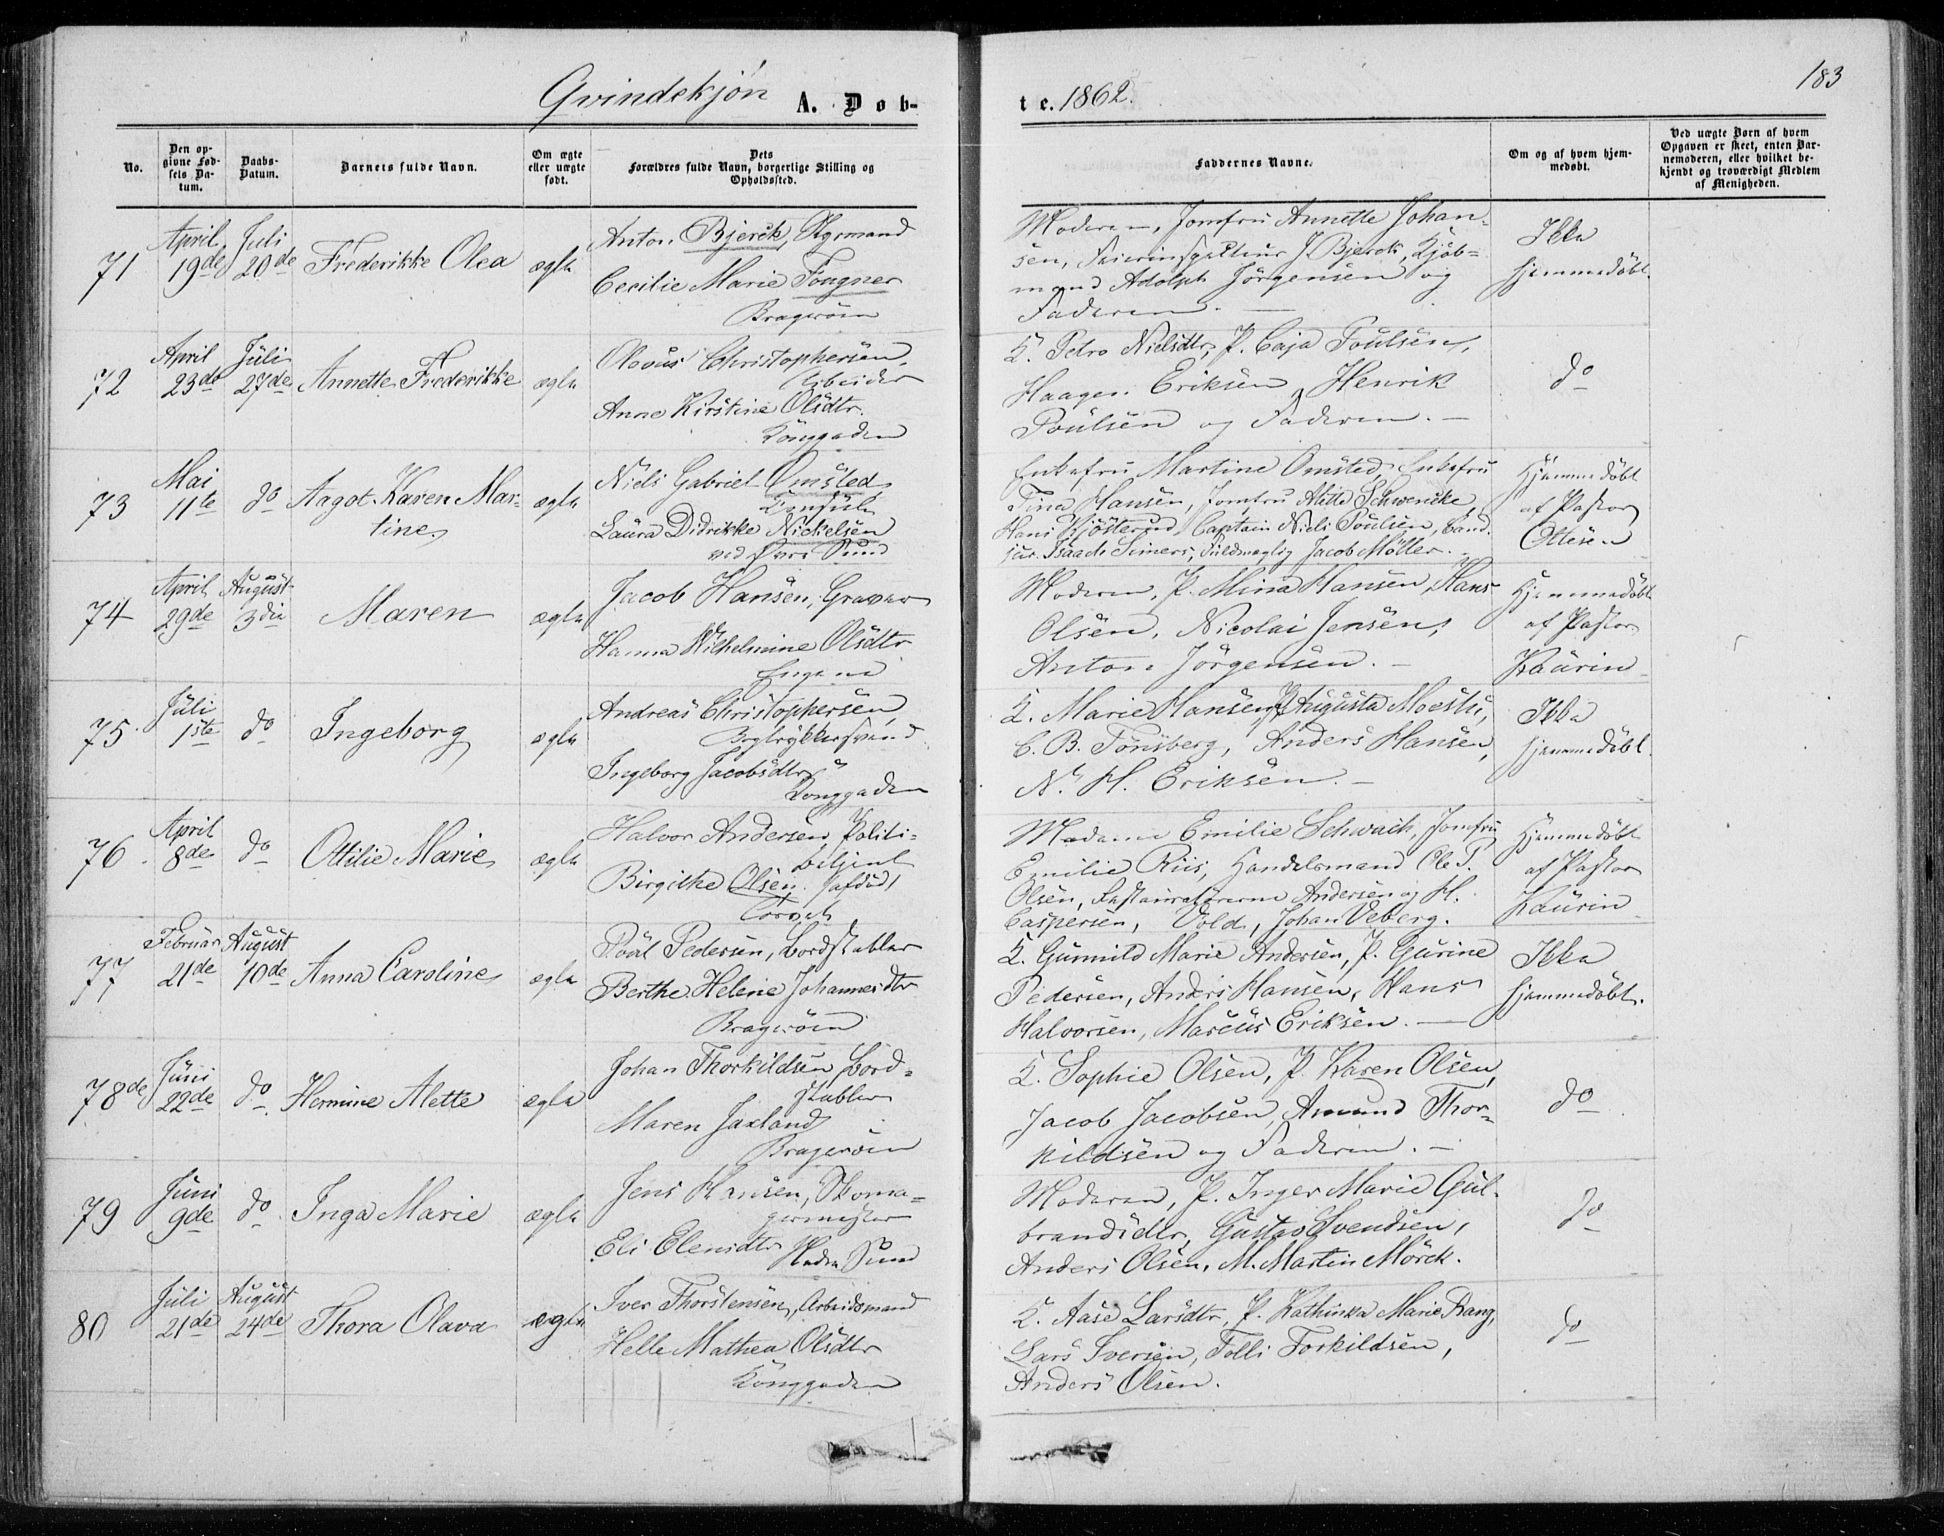 183
Qvindekjøn A. Døb-
te. 1862.
No.
Den op-
givne Fød-
sels Da-
tum.
Daabs-
Datum.
Barnets fulde Navn.
Om ægte
eller uægte
født.
Dets
Forældres fulde Navn, borgerlige Stilling og
Opholdssted.
Faddernes Navne.
Om og af hvem hjem-
medøbt.
Ved uægte Børn af hvem
Opgaven er skeet, enten Bar-
nemoderen, eller hvilket be-
kjendt og troværdigt Medlem
af Menigheden.
71
April
19de
Juli
20de
Frederikke Olea
ægte
Anton Bjerck,
Cecilie Marie Fougner
Bragerøen
Moderen, Jomfru Annette Johan-
sen, J. Bjerck, Kjøb-
mand Adolph Jörgensen og
Faderen.
Ikke
hjemmedöbt.
72
April
23de
Juli
27de
Annette Frederikke
ægte
Olavus Christophersen,
Arbeider
Anne Kirstine Olsdtr.
Konggaden
K. Petro Nielsdtr, P. Caja Poulsen,
Haagen Eriksen, Henrik
Poulsen og Faderen. —
do
73
Mai
11te
do
Aagot Karen Mar-
tine
ægte
Niels Gabriel Omsted
Konsul
Laura Didrikke Nickelsen
ved Øvre Sund
Enkefru Martine Omsted, Enkefru
Tina Hansen, Jomfru Alette Schwencke,
Hans Kjösterud, Captain Niels Poulsen, Cand.
jur. Isaach Simers, Fuldmægtig Jacob Möller. —
Hjemmedöbt
af Pastor
Ottesen
74
April
29de
August
3die
Maren
ægte
Jacob Hansen, Graver
Hanna Wilhelmine Olsdtr
Engene
Moderen, P. Mina Hansen, Hans
Olsen, Nicolai Jensen,
Anton Jörgensen. —
Hjemmedöbt
af Pastor
Kaurin
75
Juli
1ste
do
Ingeborg
ægte
Andreas Christophersen,
Bogtrykkersvend
Ingeborg Jacobsdtr
Konggaden
K. Marie Hansen, P. Augusta Moestu,
C. B. Tönsberg, Anders Hansen,
N. H. Eriksen. —
Ikke
hjemmedöbt.
76
April
8de
do
Ottilie Marie
ægte
Halvor Andersen, Politi-
betjent
Birgithe Olsen (afdöd)
Torvet
Madame Emilie Schwach, Jomfru
Emilie Riis, Handelsmand Ole P.
Olsen, Restauratörerne Andersen og H.
Caspersen, Vold, Johan Veberg.
Hjemmedöbt
af Pastor
Kaurin
77
Februar
21de
August
10de
Anna Caroline
ægte
Poul Pedersen, Bordstabler
Berthe Helene Johannesdtr
Bragerøen
K. Gunnild Marie Andersen, P. Gurine
Pedersen, Anders Hansen, Hans
Halvorsen, Marcus Eriksen. —
Ikke
hjemmedöbt.
78de
Juni
22de
do
Hermine Alette
ægte
Johan Thorkildsen, Bord-
stabler
Maren Jaxland
Bragerøen
K. Sophie Olsen, P. Karen Olsen,
Jacob Jacobsen, Amund Thor-
kildsen og Faderen. —
do
79
Juni
9de
do
Inga Marie
ægte
Jens Hansen, Skoma-
germester
Eli Elensdtr
Nedre Sund
Moderen, P. Inger Marie Gul-
brandsdtr, Gustav Svendsen,
Anders Olsen, M. Martin Mörck.
do
80
Juli
21de
August
24de
Thora Olava
ægte
Iver Thorstensen, Arbeidsmand
Helle Mathea Olsdtr
Konggaden
K. Aase Larsdtr, P. Kathinka Marie Bang,
Lars Iversen, Tolli Torkildsen,
Anders Olsen.
do